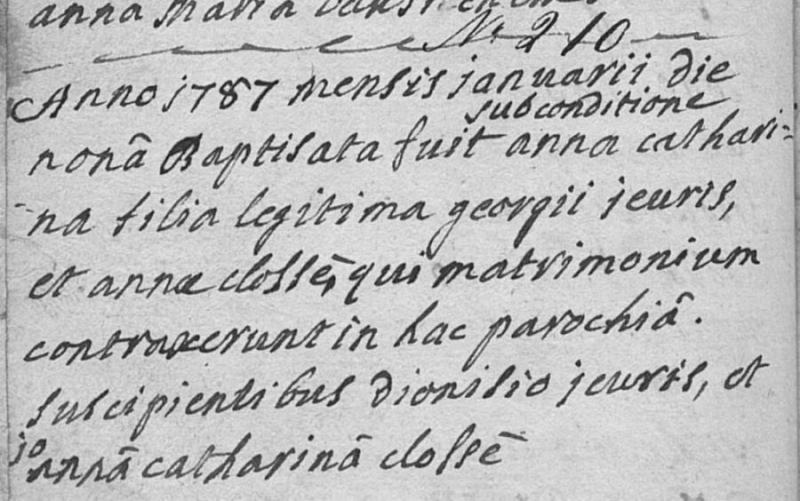 anna Maria
N 210
Anno 1787 mensis januarii die
subconditione
nonâ Baptisata fuit anna cathari=
na filia legitima georgii jeuris,
et annæ clossē, qui matrimonium
contraxerunt in hac parochiâ.
suscipientibus dionisio jeuris, et
jo
annâ catharinâ clossē